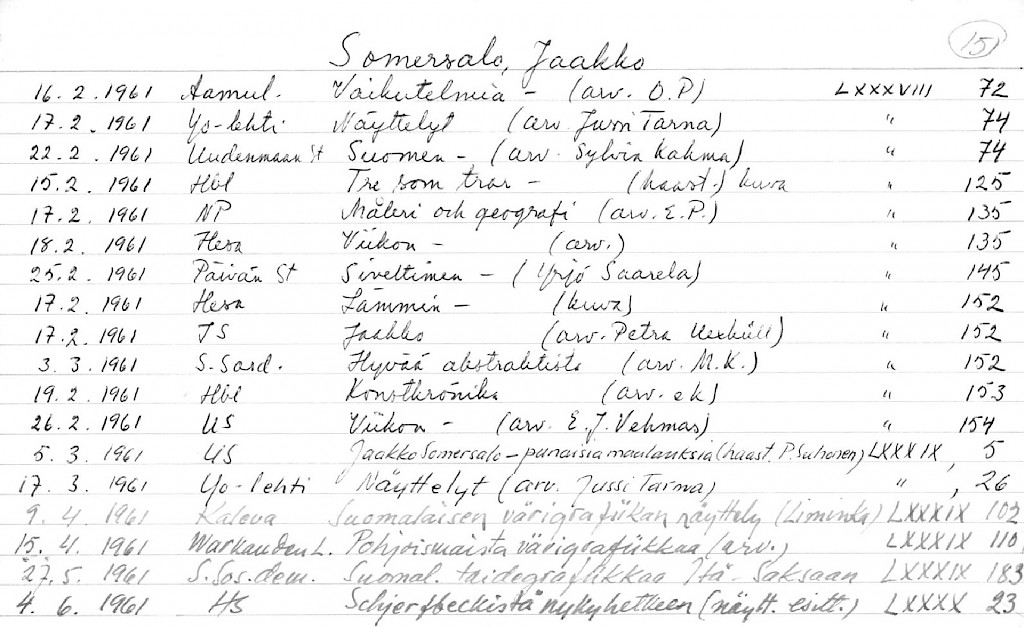 15)
Somersalo, Jaakko
16.2.1961 Aamul. Vaikutelmia - (arv. O.P) LXXXVIII 72
17.2.1961 Yo-lehti Näyttelyt (arv. Jussi Tarna) " 74
22.2.1961 Uudenmaan St Suomen - (arv. Sylvia Kahma) " 74
15.2.1961 Hbl Tre som trar - (haast.) kuva " 125
17.2.1961 NP Måleri och geografi (arv. E.P.) " 135
18.2.1961 Hesa Viikon - (arv.) " 135
25.2.1961 Päivän St Siveltimen - (Yrjö Saarela) " 145
17.2.1961 Hesa Lämmin - (kuva) " 152
17.2.1961 IS Jaakko (arv. Petra Uexküll) " 152
3.3.1961 S.Sosd. Hyvää abstraktista (arv. M.K.) " 152
19.2.1961 Hbl Konstkrönika (arv. ek) " 153
26.2.1961 US Viikon - (arv. E.J. Vehmas) " 154
5.3.1961 US Jaakko Somersalo - punaisia maalauksia (haast. P. Suhonen) LXXXIX, 5
17.3.1961 Yo-lehti Näyttelyt (arv. Jussi Tarna) " , 26
9.4.1961 Kaleva Suomalaisen värigrafiikan näyttely (Liminka) LXXXIX 102
15.4.1961 Warkauden L. Pohjoismaista värigrafiikkaa (arv.) LXXXIX 110
27.5.1961 S.Sos.dem. Suomal. taidegrafiikkaa Itä-Saksaan LXXXIX 183
4.6.1961 HS Schjerfbeckistä nykyhetkeen (näytt. esitt.) LXXXX 23